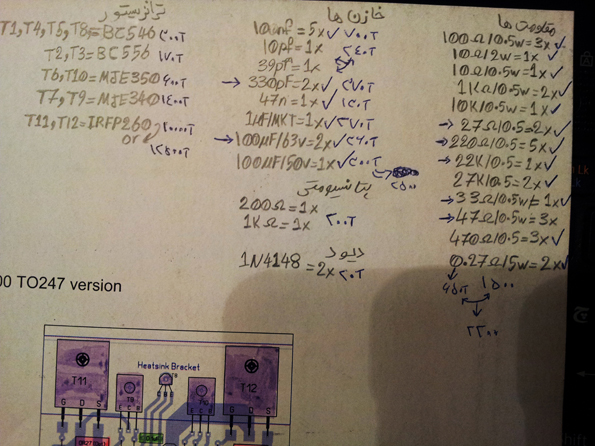 ترانزیستور
T1, T4, T5, T8 = BC546 ۳۰۰T
T2, T3 = BC556 ۱۷۰T
T6, T10 = MJE350 ۶۰۰T
T7, T9 = MJE340 ۱۴۰۰T
T11, T12 = IRFP260 ۲۰۰۰۰T
or
۱۲۵۰۰T
خازن ها
100nf = 5x ✓ ۷۰۰T
10pf = 1x ۲۴۰T
39pf = 1x
→ 330pF = 2x ✓ ۲۷۰T
47n = 1x ✓ ۱۲۰T
1µF/MKT = 1x ✓ ۳۷۰T
→ 100µF/63v = 2x ✓ ۲۶۰T
100µF/50v = 1x ✓ ۲۰۰T
۲۵۰۰
پتانسیومتر
200Ω = 1x
1KΩ = 1x ۲۰۰T
دیود
1N4148 = 2x ۲۰T
مقاومت ها
100Ω/0.5w = 3x ✓
10Ω/2w = 1x ✓
10Ω/0.5w = 1x ✓
1KΩ/0.5w = 2x ✓
10K/0.5w = 1x ✓
→ 27Ω/0.5 = 2x ✓
→ 220Ω/0.5 = 5x ✓
→ 22K/0.5 = 2x ✓
27K/0.5 = 2x ✓
→ 33Ω/0.5w = 1x ✓
→ 47Ω/0.5w = 3x
470Ω/0.5 = 3x ✓
0.27Ω/5w = 2x ✓
۶۵۰T ۱۵۰۰
۲۲۰۰
00 TO247 version
Heatsink Bracket
T11
T12
G D S
E C B
E C B
G D S